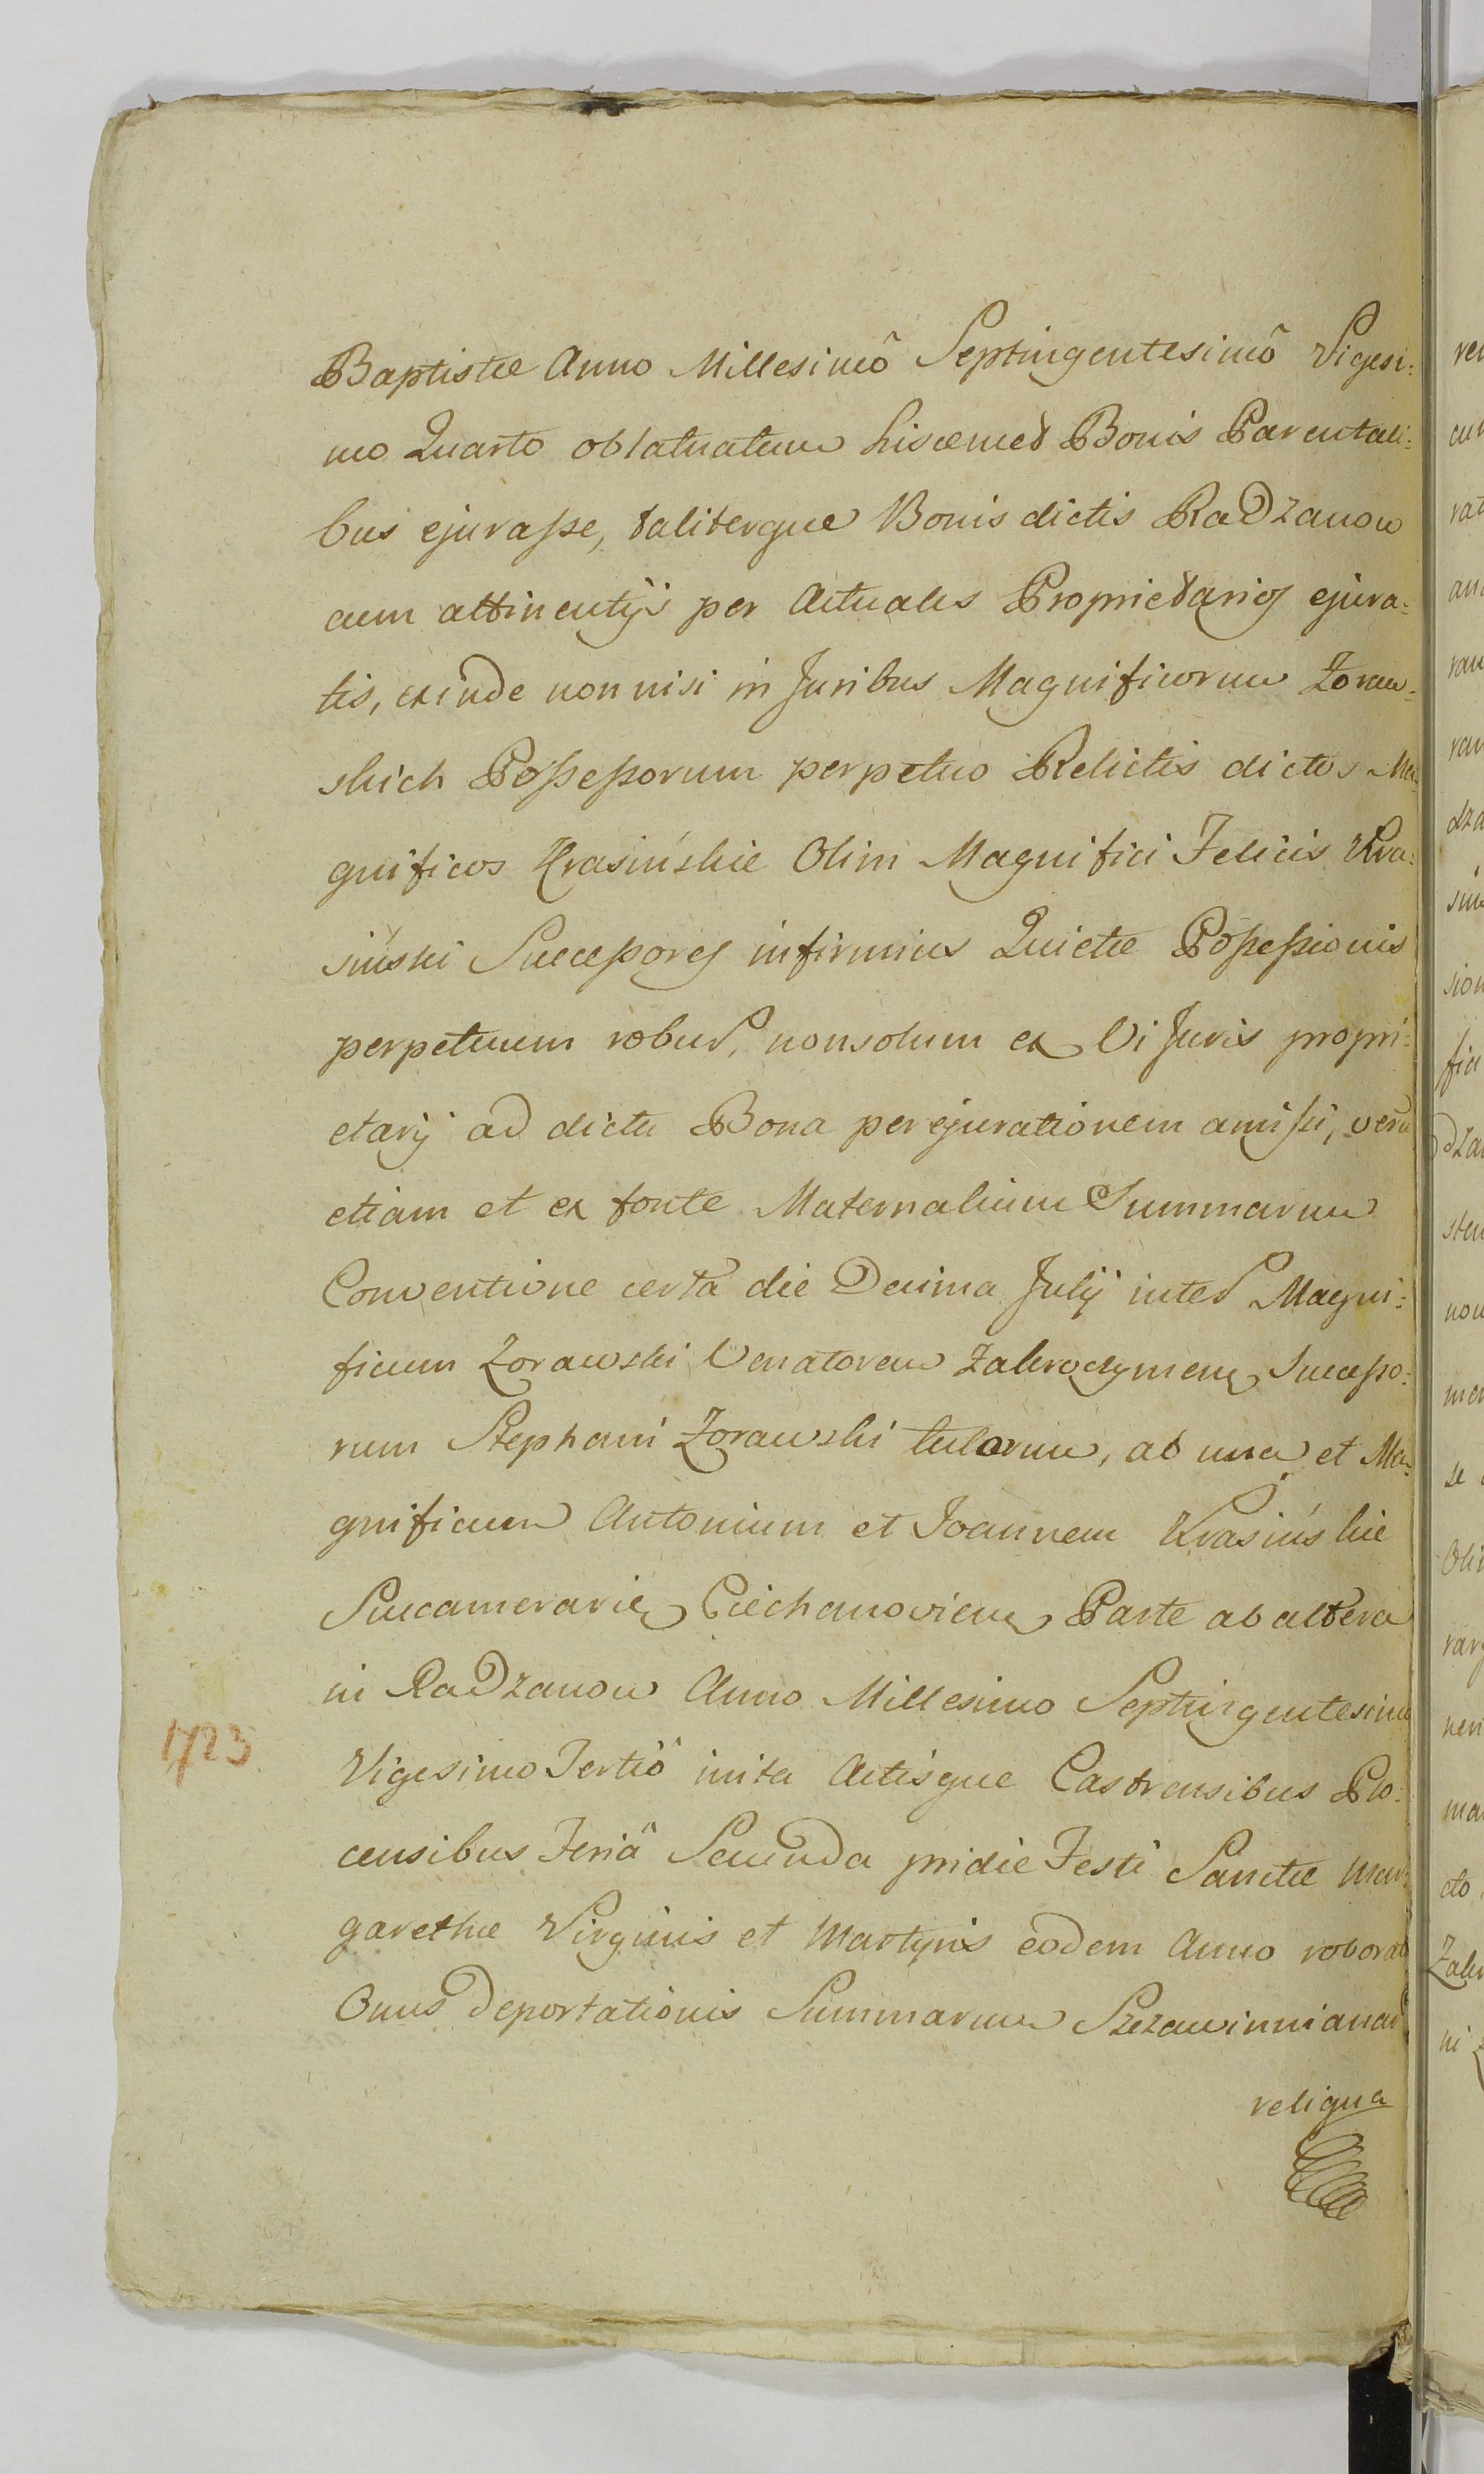 Baptistæ Anno Millesimô Septingentesimô Vigesi:
mo Quarto oblatuatum hiscemet Bonis Parentali:
bus ejurasse, taliterque Bonis dictis Radzanow
cum attinentijs per Actuales Proprietarios ejura:
tis, exinde non nisi in Juribus Magnificorum Zoraw:
skich Possessorum perpetuo Relictis dictos Ma:
gnificos Krasińskie Olim Magnifici Felicis Kra:
siński Successores infirmius Quietæ Possessionis
perpetuum robur, nonsolum ex Vi Juris propri:
etarij ad dicta Bona per ejurationem amissi, verũ
etiam et ex fonte Maternalium Summarum
Conventione certa die Decima Julij inter Magni:
ficum Zorawski Venatorem Zakroczymen Successo:
rum Stephani Zorawski tutorem, ab una et Ma:
gnificum Antonium et Joannem Krasińskie
Succamerarie Ciechanovien Parte ab altera
in Radzanow Anno Millesimo Septingentesimo
1723 Vigesimo Tertiô inita Actisque Castrensibus Plo:
censibus Feriâ Secunda pridie Festi Sanctæ Mar:
garethæ Virginis et Martyris eodem Anno roborat
Onus deportationis Summarum Szczawinnianar
reliqua